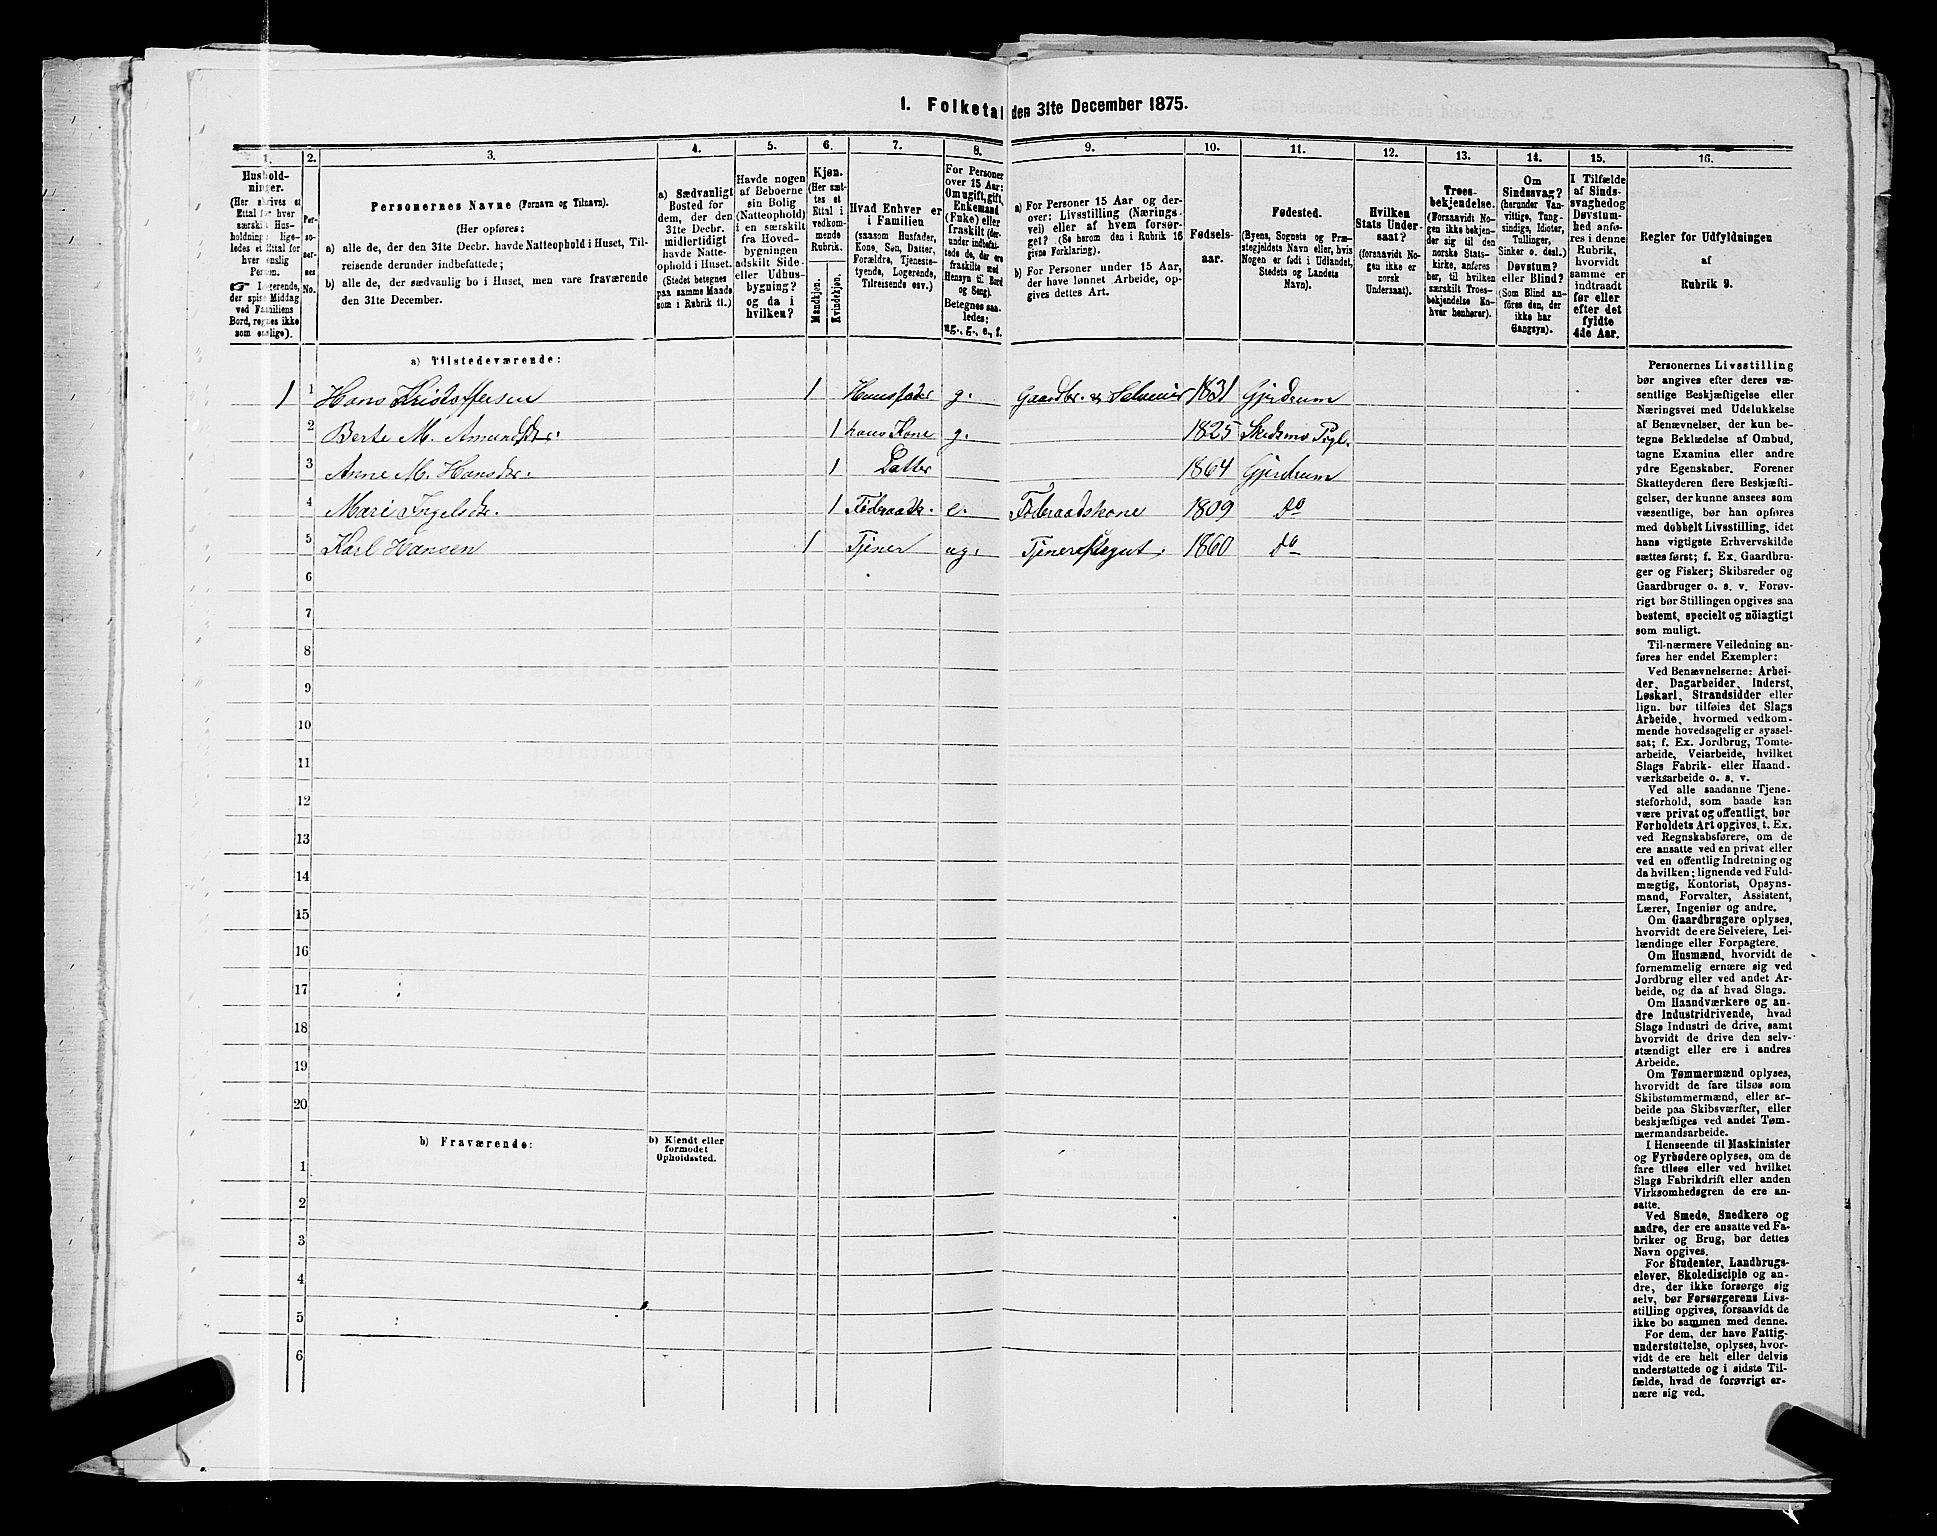 1. Folketal den 31te December 1875.
1.
Hushold-
ninger.
(Her skrives et
Ettal for hver
særskilt Hus-
holdning; lige-
ledes et Ettal for
hver enslig
Person.
☞ Logerende,
der spise Middag
ved Familiens
Bord, regnes ikke
som enslige).
2.
Per-
so-
ner-
nes
No.
3.
Personernes Navne (Fornavn og Tilnavn).
(Her opføres:
a) alle de, der den 31te Decbr. havde Natteophold i Huset, Til-
reisende derunder indbefattede;
b) alle de, der sædvanlig bo i Huset, men vare fraværende
den 31te December.
4.
a) Sædvanligt
Bosted for
dem, der den
31te Decbr.
midlertidigt
havde Natte-
ophold i Huset.
(Stedet betegnes
paa samme Maade
som i Rubrik 11.)
5.
Havde nogen
af Beboerne
sin Bolig
(Natteophold)
i en særskilt
fra Hoved-
bygningen
adskilt Side-
eller Udhus-
bygning?
og da i
hvilken?
6.
Kjøn.
(Her sæt-
tes et
Ettal i
vedkom-
mende
Rubrik.
Mandkjøn.
Kvindekjøn.
7.
Hvad Enhver er
i Familien
(saasom Husfader,
Kone, Søn, Datter,
Forældre, Tjeneste-
tyende, Logerende,
Tilreisende osv.)
8.
For Personer
over 15 Aar:
Om ugift, gift,
Enkemand
(Enke) eller
fraskilt (der-
under indbefat-
tede de, der ere
fraskilte med
Hensyn til Bord
og Seng).
Betegnes saa-
ledes:
ug., g., e., f.
9.
a) For Personer 15 Aar og der-
over: Livsstilling (Nærings-
vei) eller af hvem forsør-
get? (Se herom den i Rubrik 16
givne Forklaring).
b) For Personer under 15 Aar,
der have lønnet Arbeide, op-
gives dettes Art.
10.
Fødsels-
aar.
11.
Fødested.
(Byens, Sognets og Præ-
stegjeldets Navn eller, hvis
Nogen er født i Udlandet,
Stedets og Landets
Navn).
12.
Hvilken
Stats Under-
saat?
(forsaavidt No-
gen ikke er
norsk
Undersaat).
13.
Troes-
bekjendelse.
(Forsaavidt No-
gen ikke bekjen-
der sig til den
norske Stats-
kirke, anføres
her, til hvilken
særskilt Troes-
bekjendelse En-
hver henhører).
14.
Om
Sindssvag?
(herunder Van-
vittige, Tung-
sindige, Idioter,
Tullinger,
Sinker o. desl.)
Døvstum?
eller Blind?
(Som Blind an-
føres den, der
ikke har
Gangsyn).
15.
I Tilfælde
af Sinds-
svaghed og
Døvstum-
hed anfø-
res i denne
Rubrik,
hvorvidt
samme er
indtraadt
før eller
efter det
fyldte
4de Aar.
16.
Regler for Udfyldningen
af
Rubrik 9.
a) Tilstedeværende:
1 1 Hans Kristoffersen 1 Huusfader g. Gaardbr. & Selveier 1831 Gjerdrum
2 Berte M. Amundsdtr. 1 hans Kone g. 1825 Skedsmo Pgl.
3 Anne M. Hansdtr. 1 Datter 1864 Gjerdrum
4 Mari Ingelsdtr. 1 Føderaadk. e. Føderaadskone 1809 do
5 Karl Hansen 1 Tjener ug. 1860 do
6
7
8
9
10
11
12
13
14
15
16
17
18
19
20
b) Fraværende:
b) Kjendt eller
formodet
Opholdssted.
1
2
3
4
5
6
Personernes Livsstilling
bør angives efter deres væ-
sentlige Beskjæftigelse eller
Næringsvei med Udelukkelse
af Benævnelser, der kun be-
tegne Beklædelse af Ombud,
tagne Examina eller andre
ydre Egenskaber. Forener
Skatteyderen flere Beskjæfti-
gelser, der kunne ansees som
væsentlige, bør han opføres
med dobbelt Livsstilling, idet
hans vigtigste Erhvervskilde
sættes først; f. Ex. Gaardbru-
ger og Fisker; Skibsreder og
Gaardbruger o. s. v. Forøv-
rigt bør Stillingen opgives saa
bestemt, specielt og nöiagtigt
som muligt.
Til nærmere Veiledning an-
føres her endel Exempler:
Ved Benævnelserne: Arbei-
der, Dagarbeider, Inderst,
Løskarl, Strandsidder eller
lign. bør tilføies det Slags
Arbeide, hvormed vedkom-
mende hovedsagelig er syssel-
sat; f. Ex. Jordbrug, Tomte-
arbeide, Veiarbeide, hvilket
Slags Fabrik- eller Haand-
værksarbeide o. s. v.
Ved alle saadanne Tjene-
steforhold, som baade kan
være privat og offentligt, bør
Forholdets Art opgives, t. Ex.
ved Regnskabsførere, om de
ere ansatte ved en privat eller
ved en offentlig Indretning og
da hvilken; lignende ved Fuld-
mægtig, Kontorist, Opsyns-
mand, Forvalter, Assistent,
Lærer, Ingeniør og andre.
Om Gaardbrugere oplyses,
hvorvidt de ere Selveiere, Lei-
lændinge eller Forpagtere.
Om Husmænd, hvorvidt de
fornemmelig ernære sig ved
Jordbrug eller ved andet Ar-
beide, og da af hvad Slags.
Om Haandværkere og an-
dre Industridrivende, hvad
Slags Industri de drive, samt
hvorvidt de drive den selv-
stændigt eller ere i andres
Arbeide.
Om Tømmermænd oplyses,
hvorvidt de fare tilsøs som
Skibstømmermænd, eller ar-
beide paa Skibsværfter, eller
beskjæftiges ved andet Tøm-
mermandsarbeide.
I Henseende til Maskinister
og Fyrbødere oplyses, om de
fare tilsøs eller ved hvilket
Slags Fabrikdrift eller anden
Virksomhedsgren de ere an-
satte.
Ved Smede, Snedkere og
andre, der ere ansatte ved Fa-
briker og Brug, bør dettes
Navn opgives.
For Studenter, Landbrugs-
elever, Skoledisciple og an-
dre, der ikke forsørge sig
selv, bør Forsørgerens Livs-
stilling opgives, forsaavidt de
ikke bo sammen med denne.
For dem, der have Fattig-
understøttelse, oplyses, hvor-
vidt de ere helt eller delvis
understøttede og i sidste Til-
fælde, hvad de forøvrigt er-
nære sig ved.